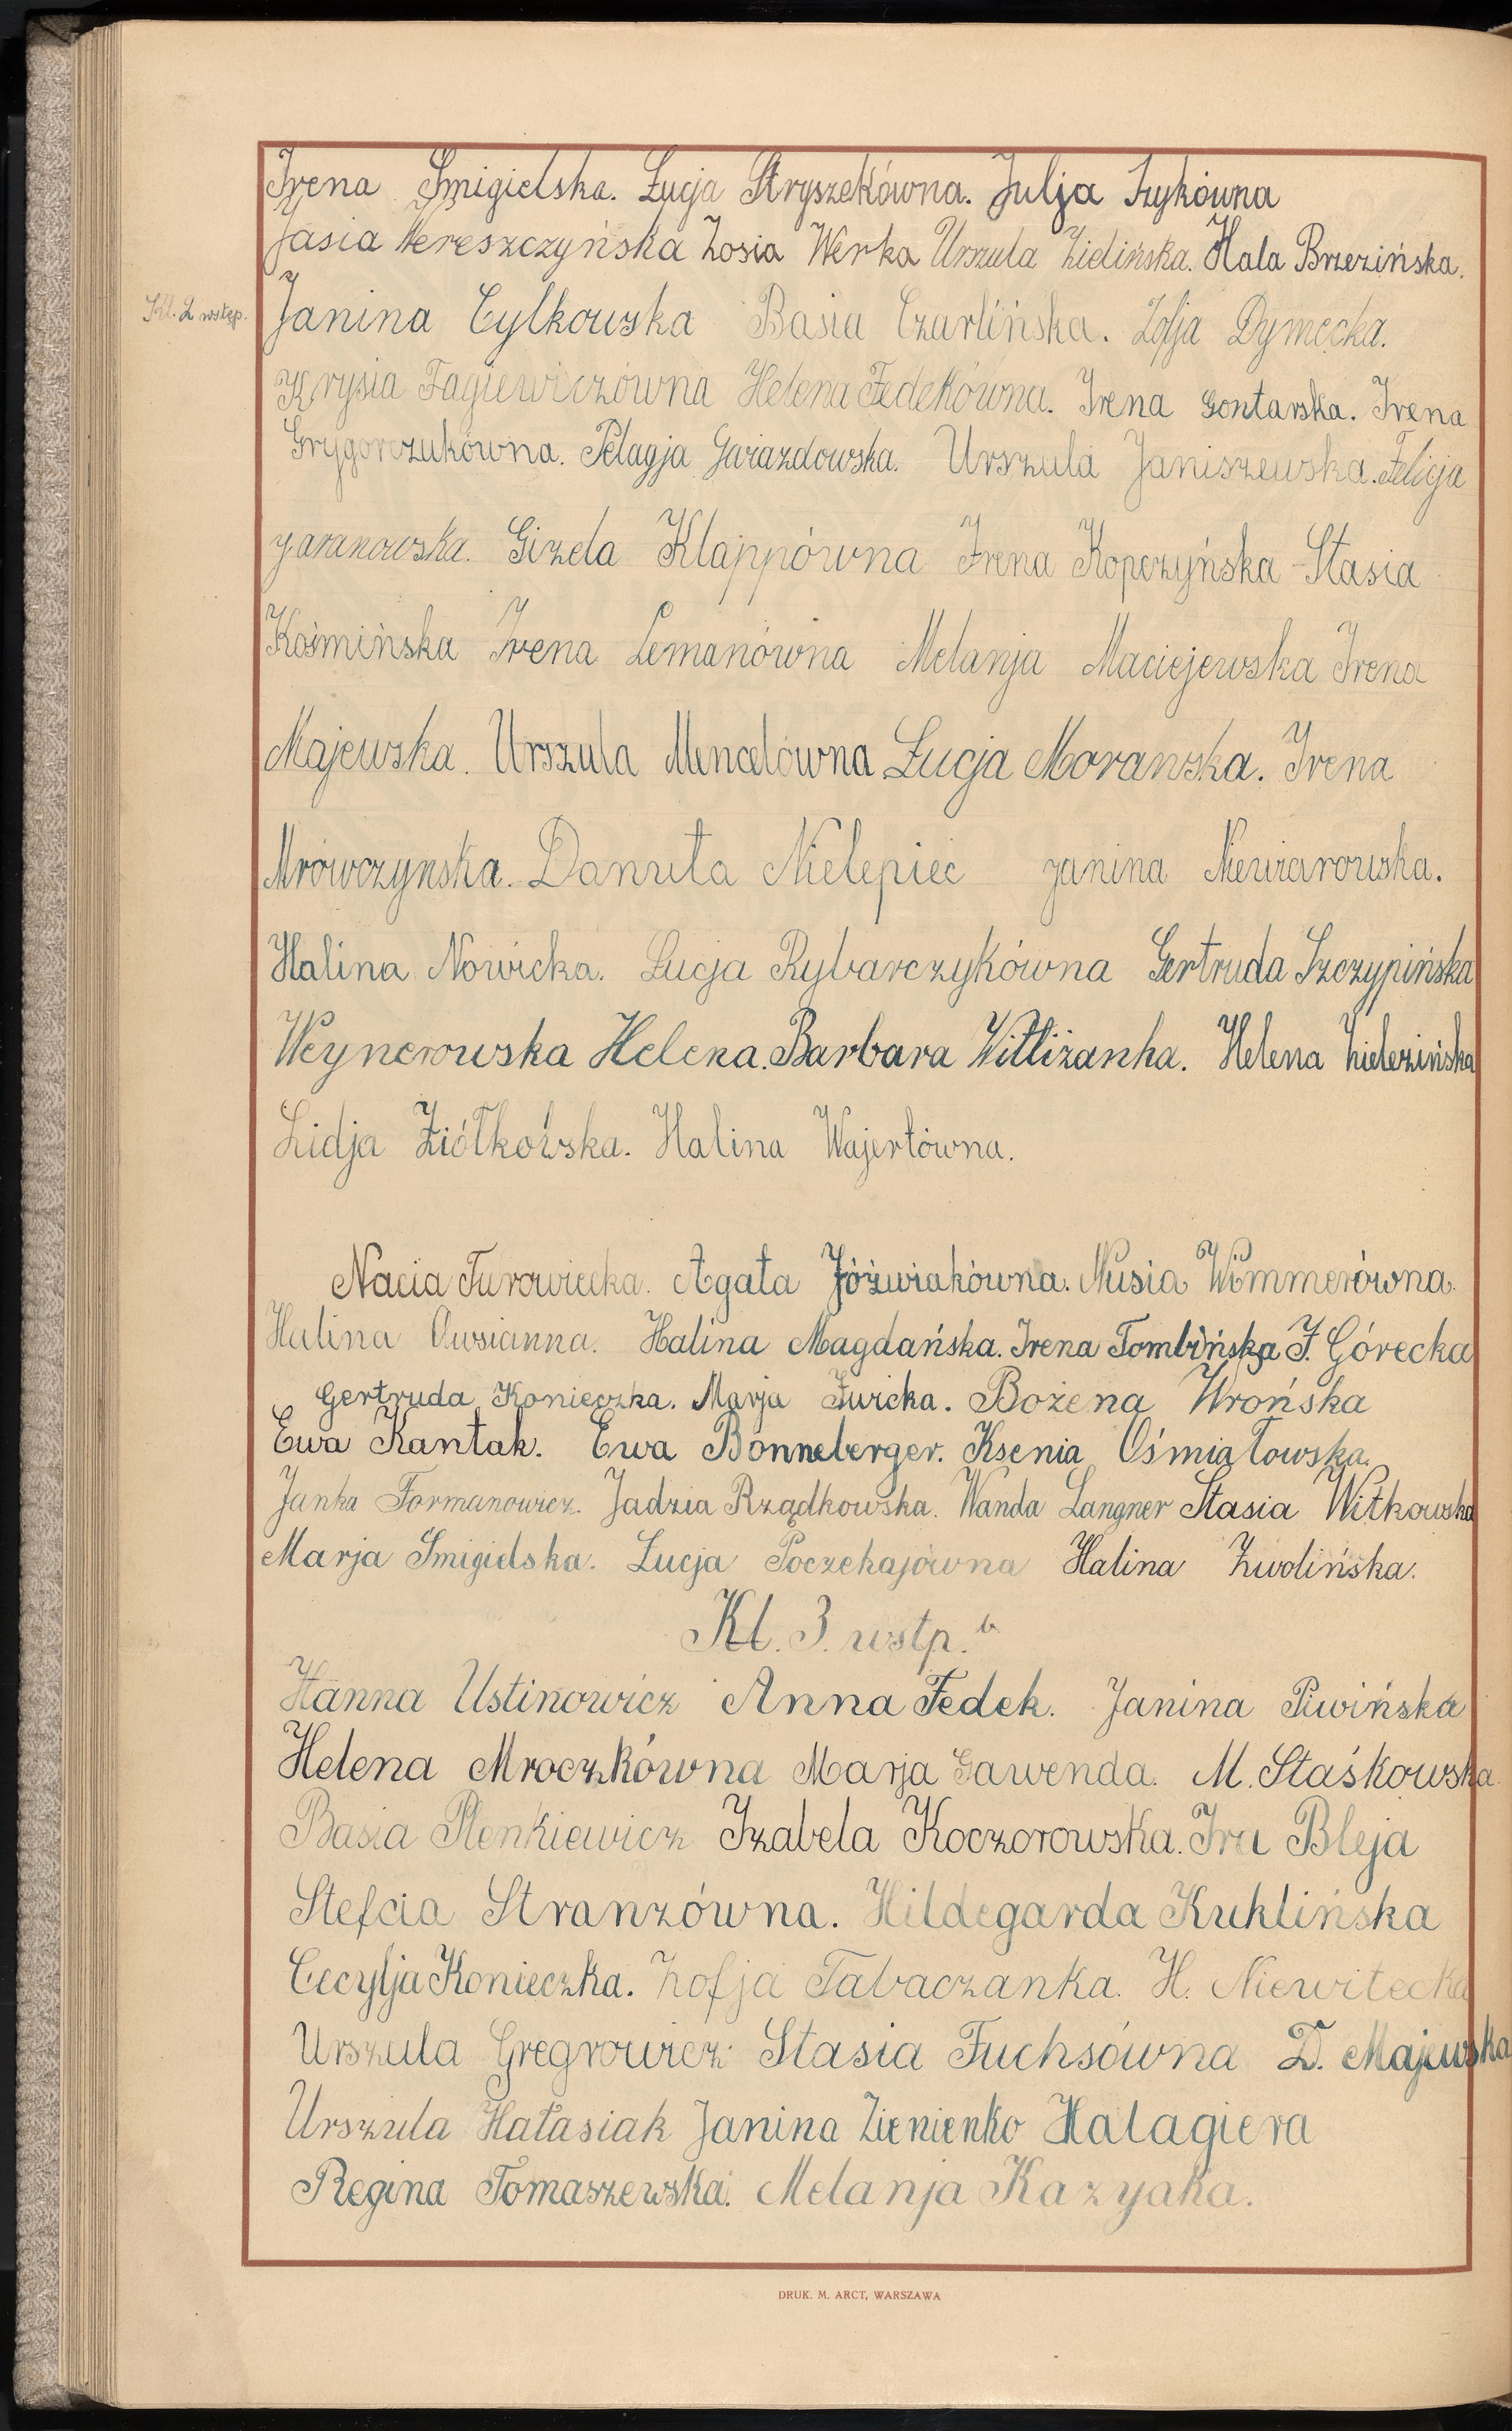 Irena Śmigielska. Łucja Stryszekówna. Julja Szykówna
Jasia Wereszczyńska Zosia Werka Urszula Zielińska. Hala Brzezińska.
Kl. 2 wstęp.
Janina Cylkowska Basia Czarlińska. Zofja Dymecka.
Krysia Fagiewiczówna Helena Fedekówna. Irena Gontarska. Irena
Grygorczukówna. Pelagja Gwiazdowska. Urszula Janiszewska. Felicja
Jaranowska. Gizela Klappówna Irena Kopczyńska Stasia
Kośmińska Irena Lemanówna Melanja Maciejewska Irena
Majewska. Urszula Mencelówna Łucja Morawska. Irena
Mrówczynska. Danuta Nielepiec Janina Niewiarowska.
Halina Nowicka. Łucja Rybarczykówna Gertruda Szczypińska
Weynerowska Helena. Barbara Wittiżanka. Helena Zielezińska
Lidja Ziółkowska. Halina Wajertówna.
Nacia Turowiecka. Agata Jóźwiakówna. Nusia Wimmerówna.
Halina Owsianna. Halina Magdańska. Irena Tombińska I. Górecka
Gertruda Konieczka. Marja Żwicka. Bożena Wrońska
Ewa Kantak. Ewa Bonneberger. Ksenia Ośmiałowska.
Janka Formanowicz. Jadzia Rządkowska. Wanda Langner Stasia Witkowska
Marja Śmigielska. Łucja Poczekajówna Halina Zwolińska.
Kl. 3. wstp. b
Hanna Ustinowicz Anna Fedek. Janina Piwińska
Helena Mroczkówna Marja Gawenda. M. Staśkowska
Basia Plenkiewicz Izabela Koczorowska. Ira Bleja
Stefcia Stranzówna. Hildegarda Kuklińska
Cecylja Konieczka. Zofja Tabaczanka. H. Niewitecka
Urszula Gregrowicz Stasia Fuchsówna D. Majewska
Urszula Hałasiak Janina Zienienko Halagiera
Regina Tomaszewska. Melanja Kazyaka.
DRUK. M. ARCT, WARSZAWA